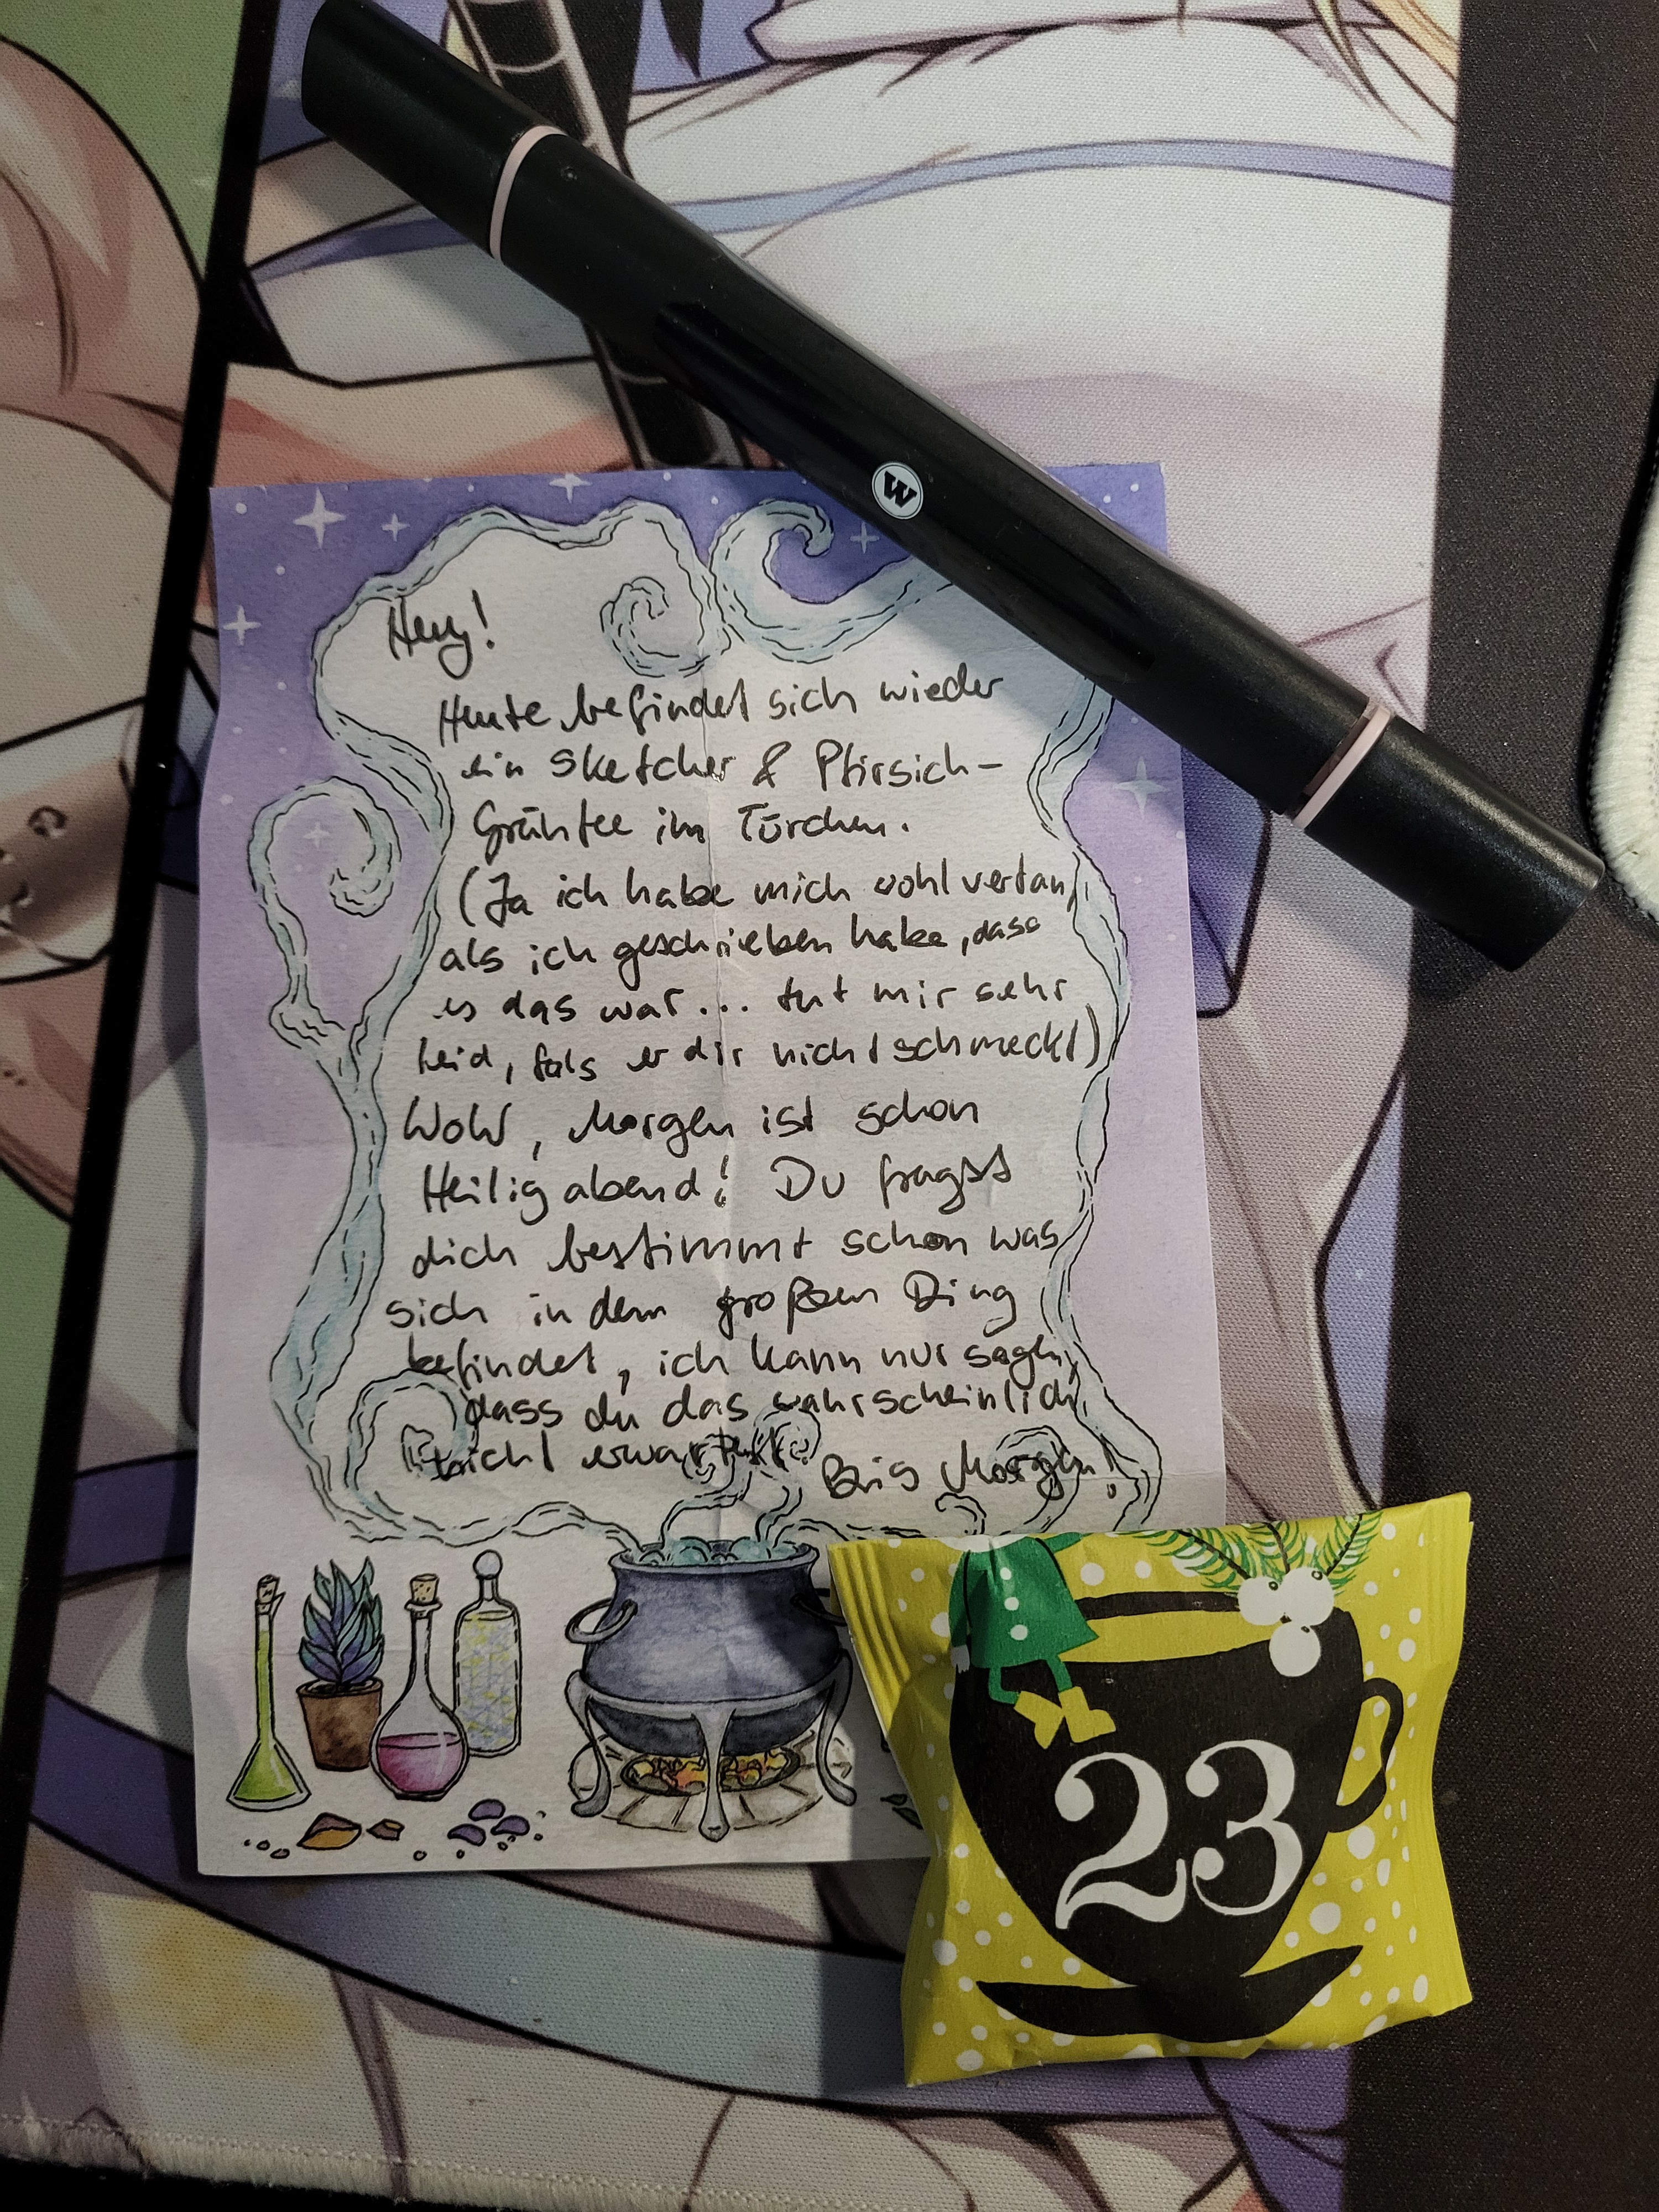 W
Hey!
Heute befindet sich wieder
ein Sketcher & Pfirsich-
Grüntee im Türchen.
(Ja ich habe mich wohl vertan,
als ich geschrieben habe, dass
es das war... tut mir sehr
Leid, fals er dir nicht schmeckt)
WoW, Morgen ist schon
Heilig abend! Du fragst
dich bestimmt schon was
sich in dem großen Ding
befindet, ich kann nur sagen,
dass du das wahrscheinlich
nicht erwartest.
Bis Morgen!
23